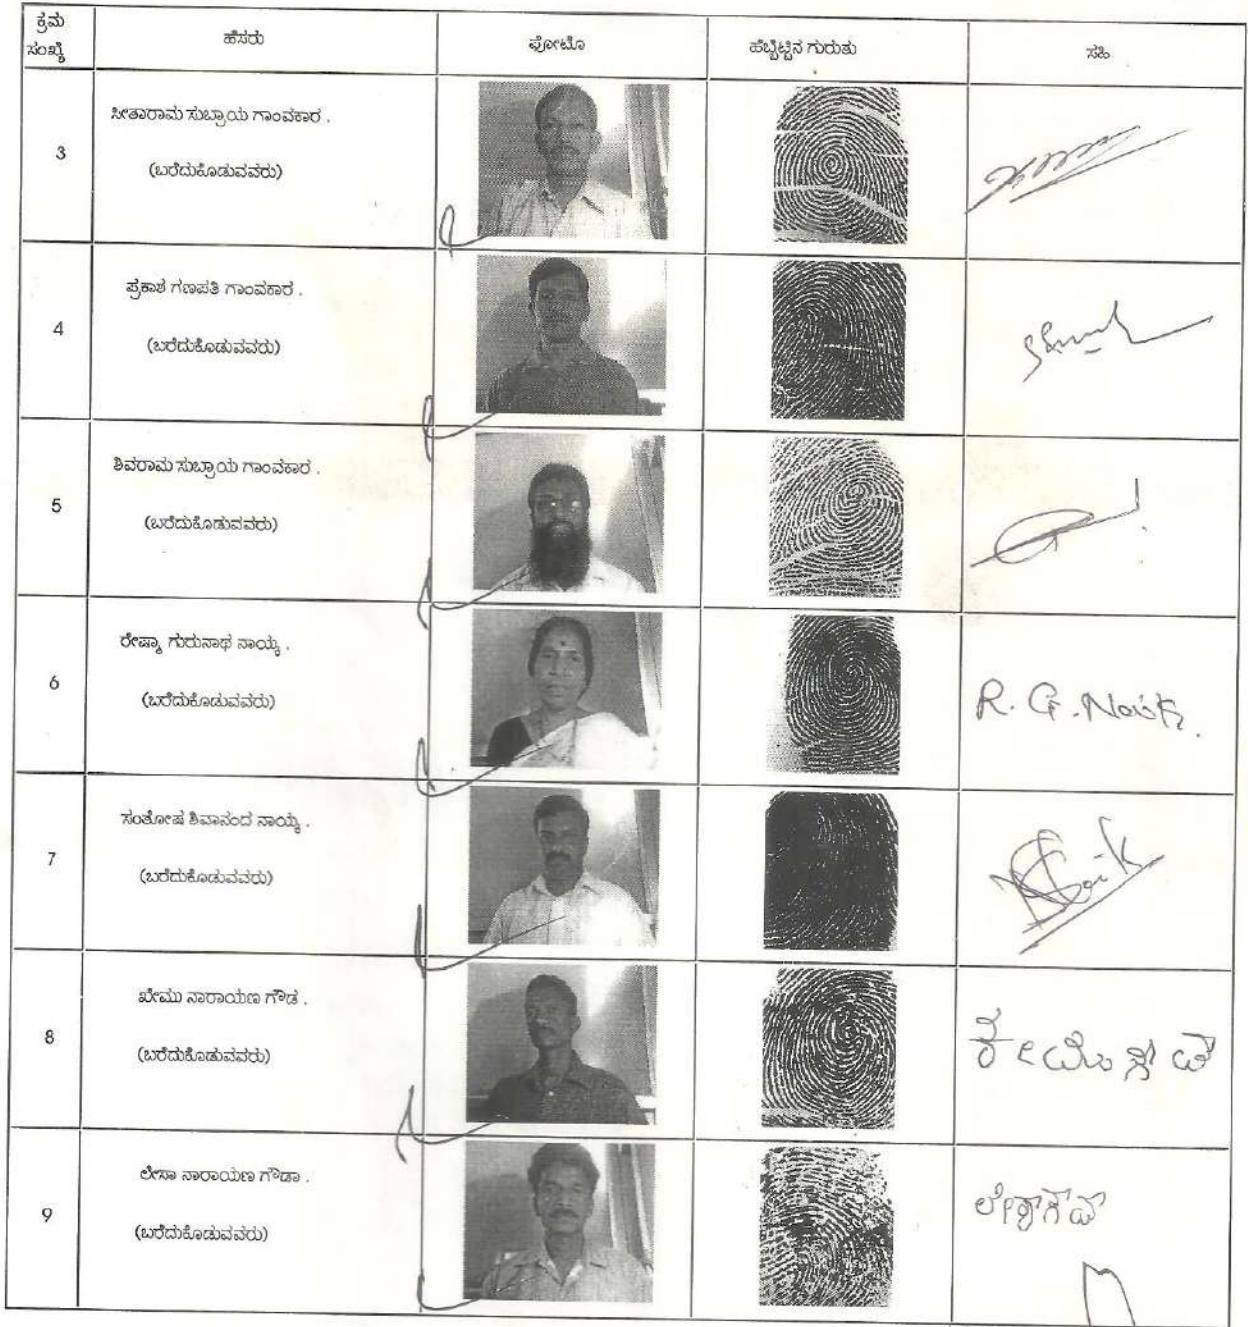 ಕ್ರಮ ಸಂಖ್ಯೆ ಹೆಸರು ಫೋಟೊ ಹೆಬ್ಬೆಟ್ಟಿನ ಗುರುತು ಸಹಿ
3 ಸೀತಾರಾಮ ಸುಬ್ರಾಯ ಗಾಂವಕಾರ .
(ಬರೆದುಕೊಡುವವರು)
4 ಪ್ರಕಾಶ ಗಣಪತಿ ಗಾಂವಕಾರ .
(ಬರೆದುಕೊಡುವವರು)
5 ಶಿವರಾಮ ಸುಬ್ರಾಯ ಗಾಂವಕಾರ .
(ಬರೆದುಕೊಡುವವರು)
6 ರೇಷ್ಮಾ ಗುರುನಾಥ ನಾಯ್ಕ .
(ಬರೆದುಕೊಡುವವರು)
R. G. Naik.
7 ಸಂತೋಷ ಶಿವಾನಂದ ನಾಯ್ಕ .
(ಬರೆದುಕೊಡುವವರು)
8 ಖೇಮು ನಾರಾಯಣ ಗೌಡ .
(ಬರೆದುಕೊಡುವವರು)
9 ಲೇಸಾ ನಾರಾಯಣ ಗೌಡಾ .
(ಬರೆದುಕೊಡುವವರು)